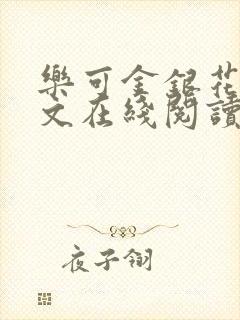 樂可金銀花
文在綫閱讀
夜子翎